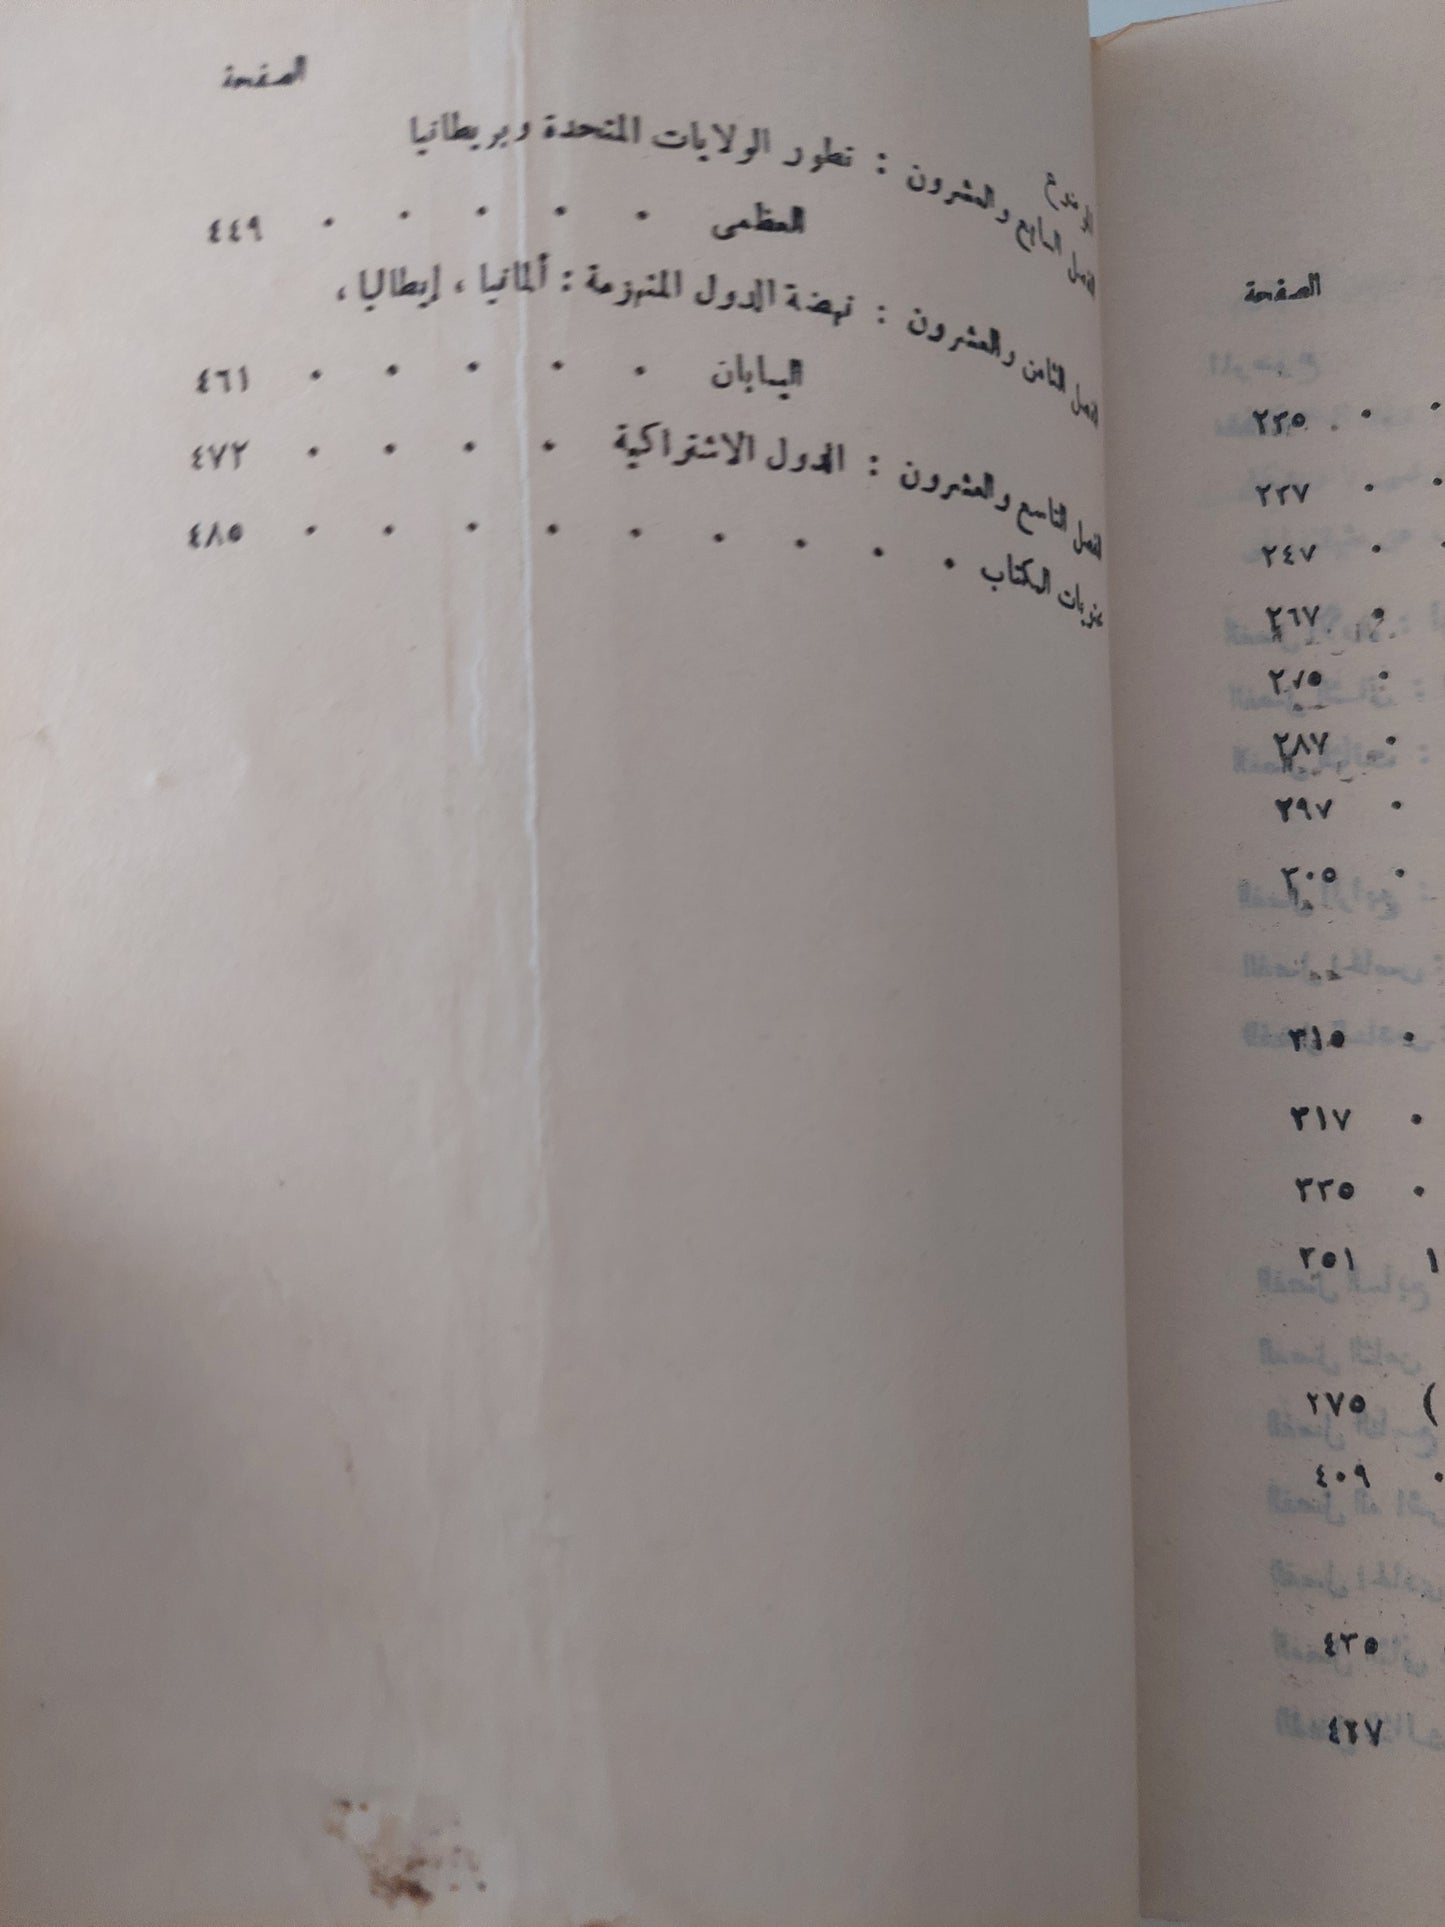 الصفحة
الموضوع
الفصل السابع والعشرون : تطور الولايات المتحدة وبريطانيا
العظمى ٤٤٩
الفصل الثامن والعشرون : نهضة الدول المنهزمة : ألمانيا ، إيطاليا ،
اليابان ٤٦١
الفصل التاسع والعشرون : الدول الاشتراكية ٤٧٢
محتويات الكتاب ٤٨٥
الصفحة
٢٣٥
٢٣٧
٢٤٧
٢٦٧
٢٧٥
٢٨٧
٢٩٧
٣٠٥
٣١٥
٣١٧
٣٣٥
٣٥١
٤٠٩
٤٣٥